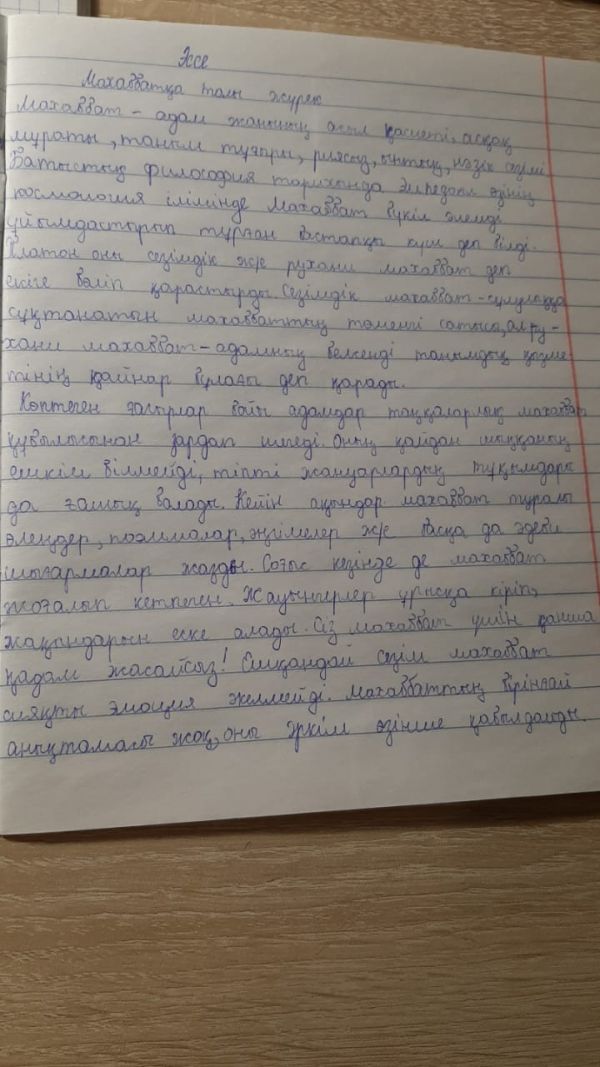 Эссе
Махаббатқа толы жүрек
Махаббат - адам жанының асыл қасиеті, асқақ
мұраты, таным тұғыры, риясыз, ынтық, нәзік сезімі
Батыстың философия тарихында Эмпедокл өзінің
космология ілімінде махаббат бүкіл әлемді
ұйымдастырып тұрған бастапқы күш деп білді.
Платон оны сезімдік және рухани махаббат деп
екіге бөліп қарастырды. Сезімдік махаббат - сұлулыққа
сұқтанатын махаббаттың төменгі сатысы, ал ру-
хани махаббат - адамның белсенді танымдық қызме-
тінің қайнар бұлағы деп қарады.
Көптеген ғасырлар бойы адамдар таңқаларлық махаббат
құбылысынан зардап шегеді. Оның қайдан шыққанын
ешкім білмейді, тіпті жануарлардың тұқымдары
да ғашық болады. Кейін ақындар махаббат туралы
өлеңдер, поэмалар, әңгімелер және басқа да әдеби
шығармалар жазды. Соғыс кезінде де махаббат
жоғалып кетпеген. Жауынгерлер ұрысқа кіріп,
жақындарын еске алады. Сіз махаббат үшін қанша
қадам жасайсыз! Ешқандай сезім махаббат
сияқты эмоция әкелмейді. Махаббаттың бірыңғай
анықтамасы жоқ, оны әркім өзінше қабылдайды.